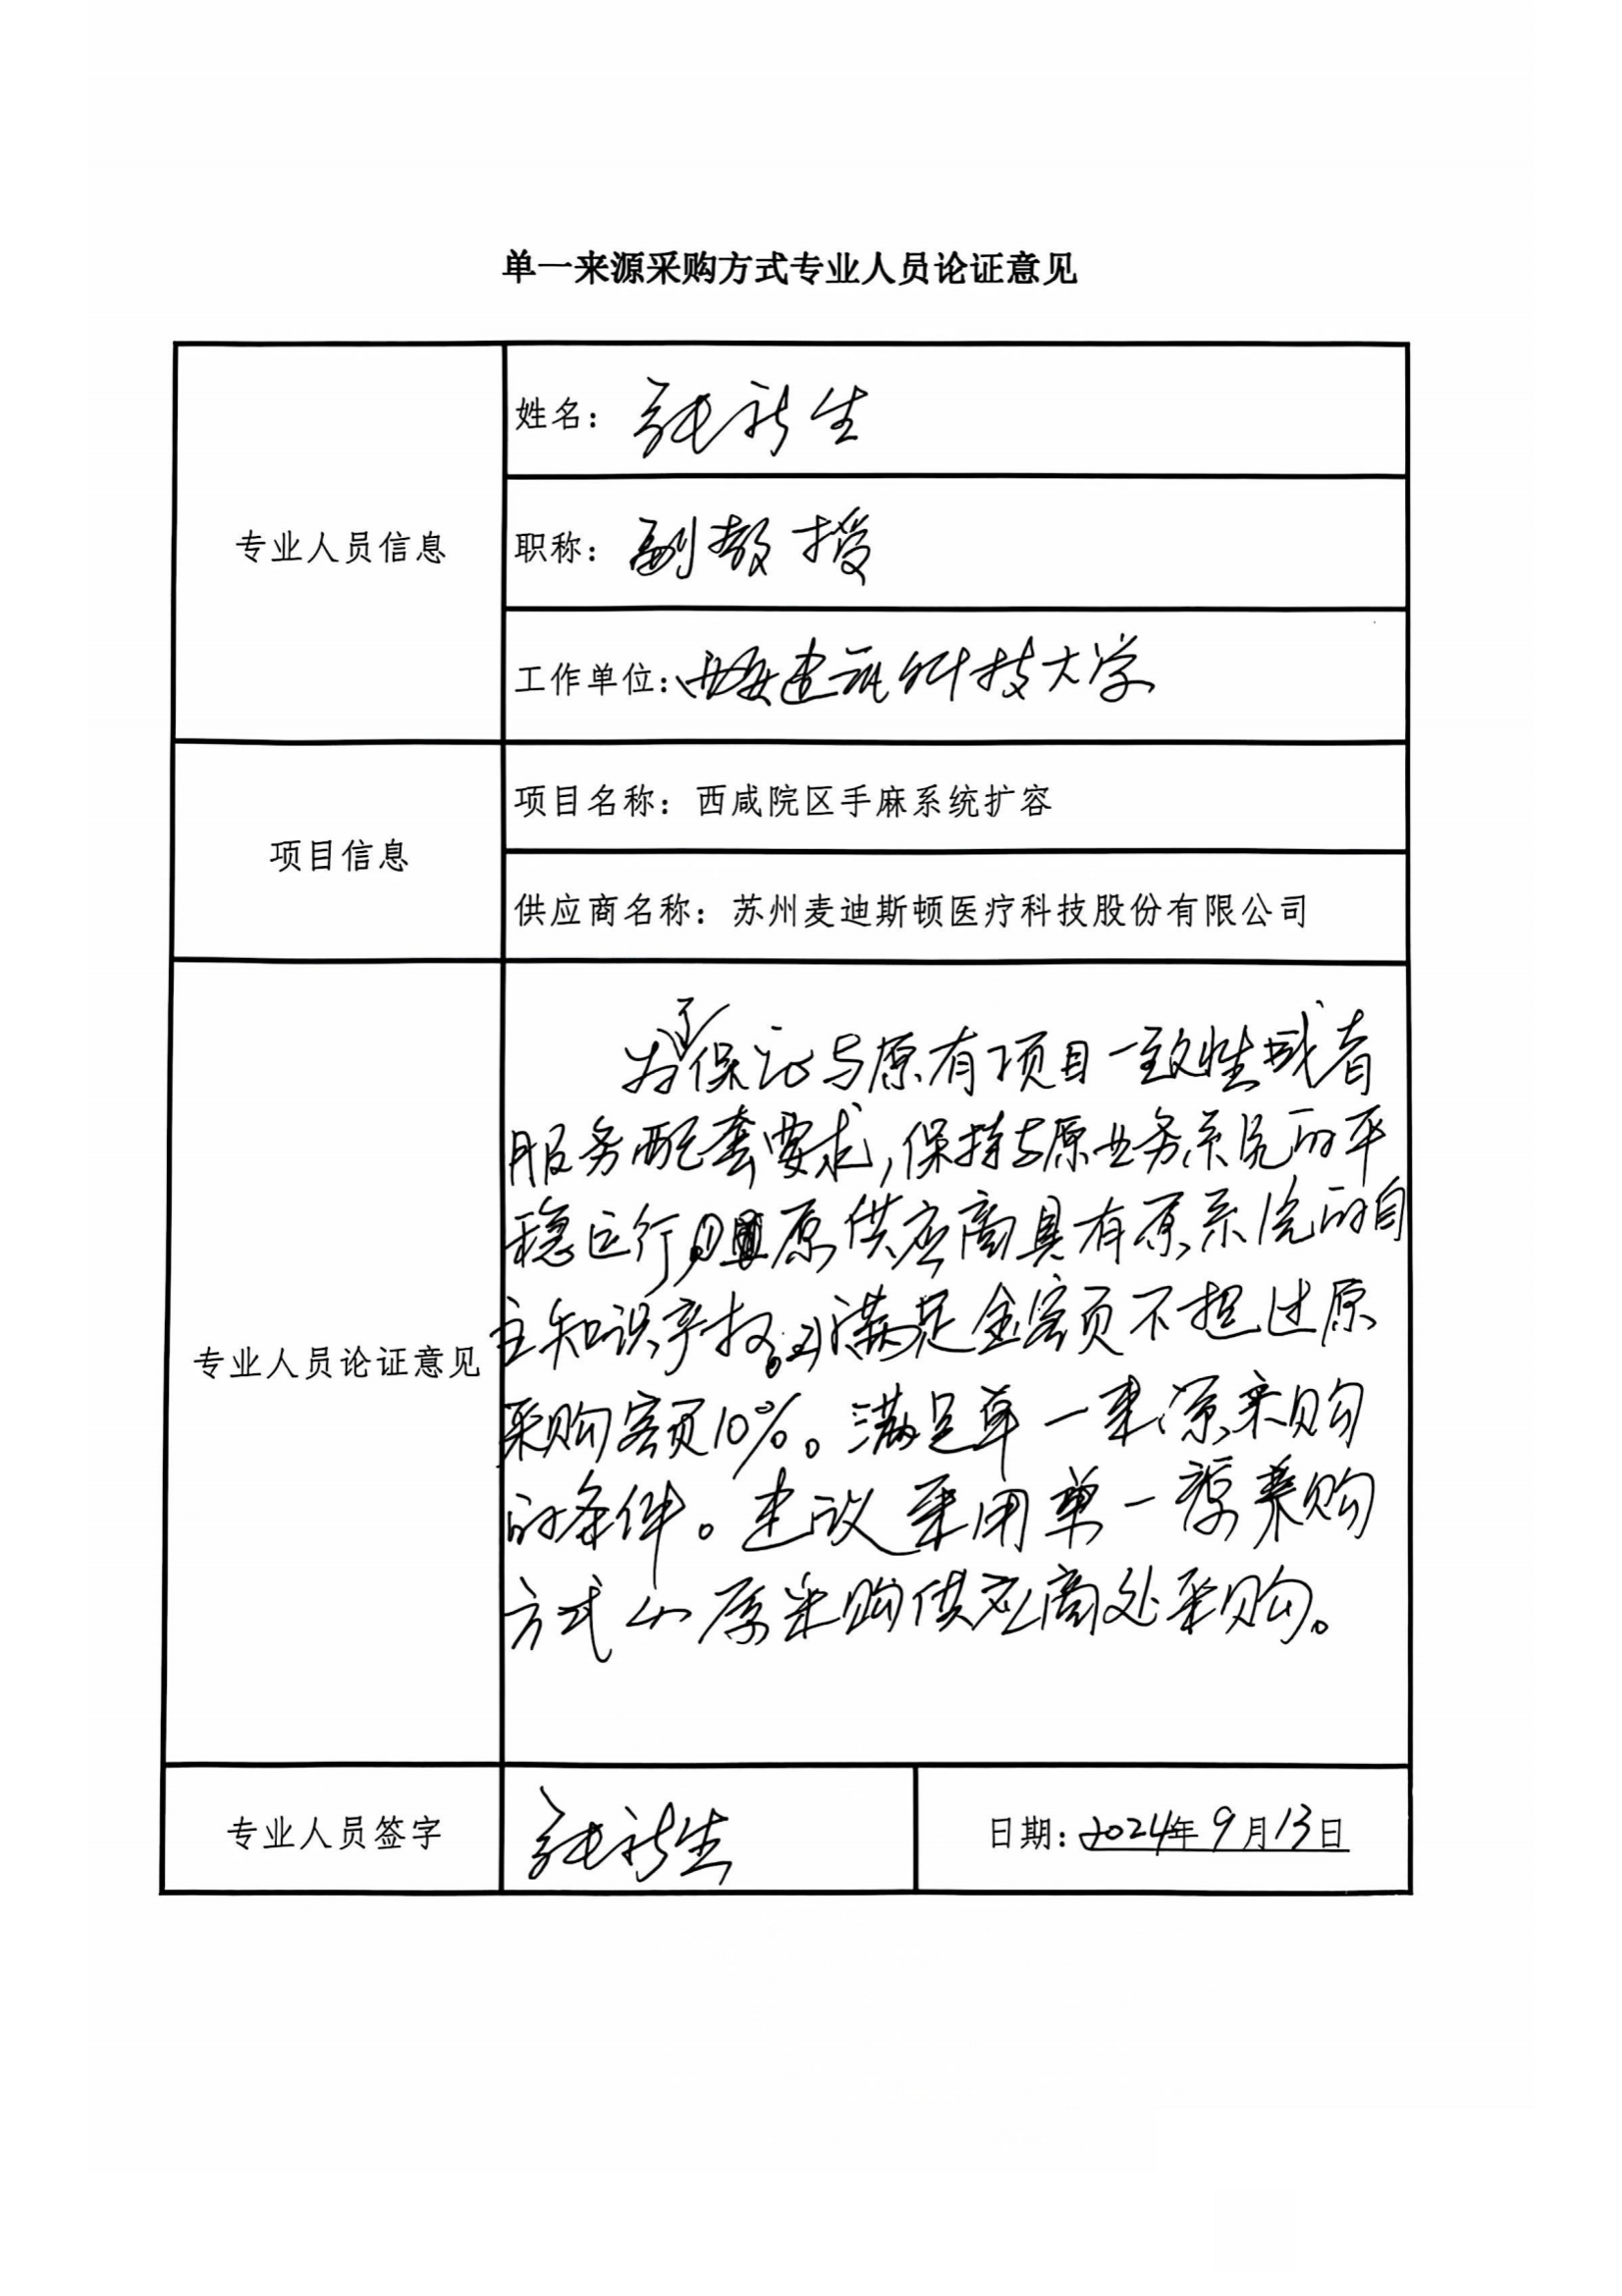 单一来源采购方式专业人员论证意见
专业人员信息
姓名：张新生
职称：副教授
工作单位：西安建筑科技大学
项目信息
项目名称：西咸院区手麻系统扩容
供应商名称：苏州麦迪斯顿医疗科技股份有限公司
专业人员论证意见
为了保证与原有项目一致性或者
服务配套要求，保持与原业务系统的平
稳运行，且原供应商具有原系统的自
主知识产权。满足金额不超过原
采购额10%。满足单一来源采购
的条件。建议采用单一源采购
方式从原采购供应商处采购。
专业人员签字
张新生
日期：2024年9月13日